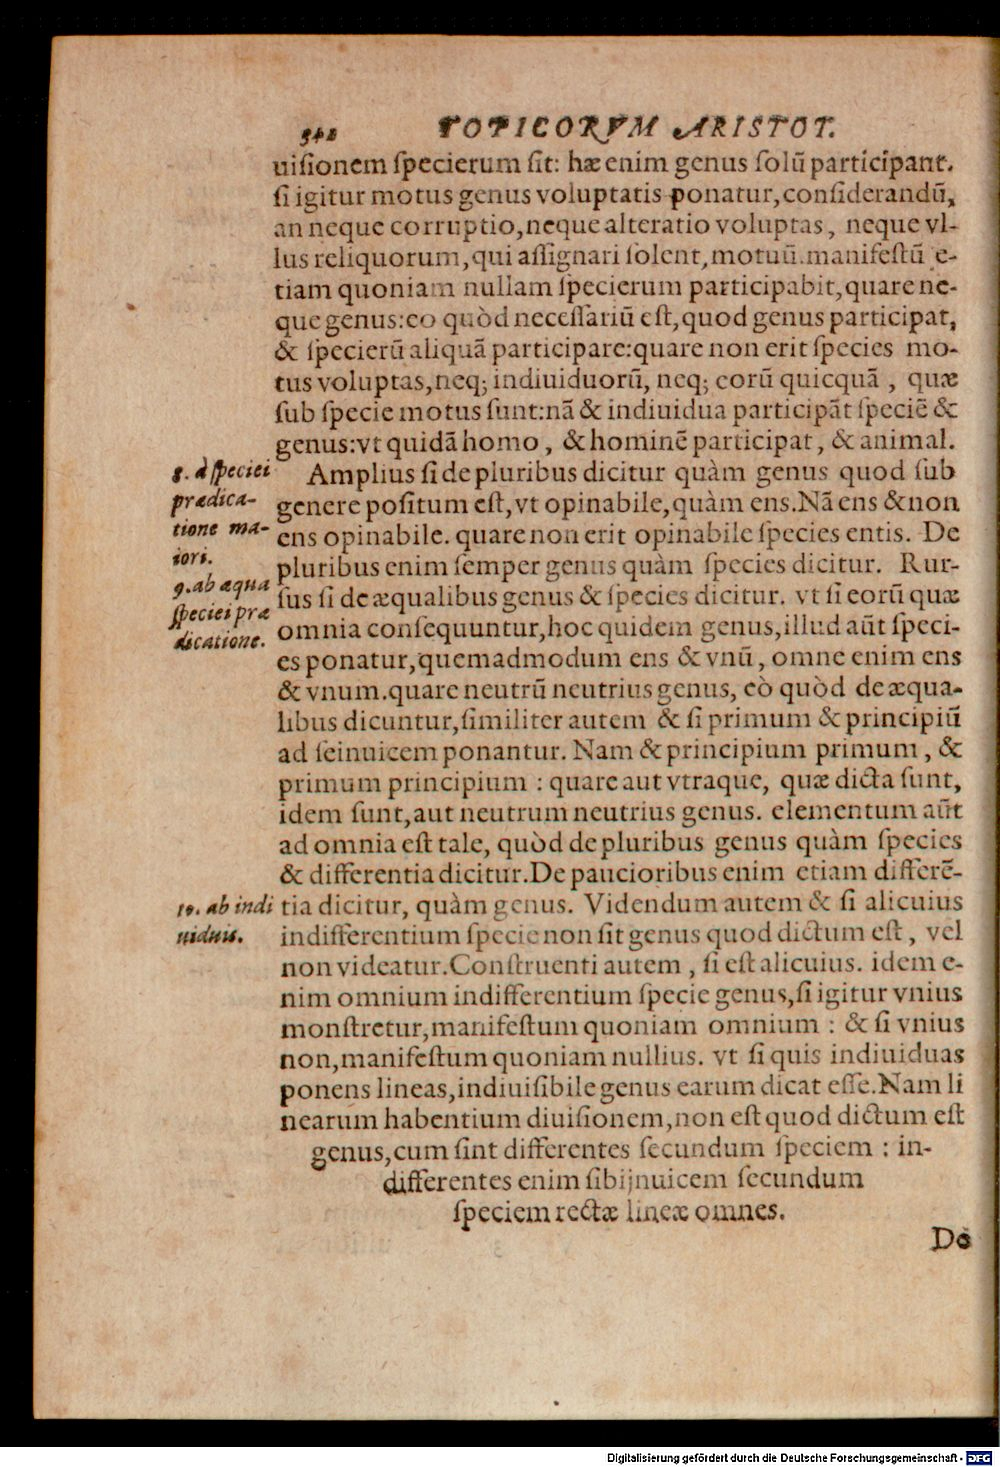 342 TOPICORVM ARISTOT.
uiſionem ſpecierum ſit: hæ enim genus ſolũ participant.
ſi igitur motus genus voluptatis ponatur, conſiderandũ,
an neque corruptio, neque alteratio voluptas, neque vl-
lus reliquorum, qui aſſignari ſolent, motuũ. manifeſtũ e-
tiam quoniam nullam ſpecierum participabit, quare ne-
que genus: eo quòd neceſſariũ eſt, quod genus participat,
& ſpecierũ aliquã participare: quare non erit ſpecies mo-
tus voluptas, neq; indiuiduorũ, neq; eorũ quicquã, quæ
ſub ſpecie motus ſunt: nã & indiuidua participãt ſpeciẽ &
genus: vt quidã homo, & hominẽ participat, & animal.
8. à ſpeciei
prædica-
tione ma-
iori.
Amplius ſi de pluribus dicitur quàm genus quod ſub
genere poſitum eſt, vt opinabile, quàm ens. Nã ens & non
ens opinabile. quare non erit opinabile ſpecies entis. De
pluribus enim ſemper genus quàm ſpecies dicitur. Rur-
9. ab æqua
ſpeciei præ
dicatione.
ſus ſi de æqualibus genus & ſpecies dicitur. vt ſi eorũ quæ
omnia conſequuntur, hoc quidem genus, illud aũt ſpeci-
es ponatur, quemadmodum ens & vnũ, omne enim ens
& vnum. quare neutrũ neutrius genus, eò quòd de æqua-
libus dicuntur, ſimiliter autem & ſi primum & principiũ
ad ſeinuicem ponantur. Nam & principium primum, &
primum principium: quare aut vtraque, quæ dicta ſunt,
idem ſunt, aut neutrum neutrius genus. elementum aũt
ad omnia eſt tale, quòd de pluribus genus quàm ſpecies
& differentia dicitur. De paucioribus enim etiam differẽ-
10. ab indi
uiduis.
tia dicitur, quàm genus. Videndum autem & ſi alicuius
indifferentium ſpecie non ſit genus quod dictum eſt, vel
non videatur. Conſtruenti autem, ſi eſt alicuius. idem e-
nim omnium indifferentium ſpecie genus, ſi igitur vnius
monſtretur, manifeſtum quoniam omnium: & ſi vnius
non, manifeſtum quoniam nullius. vt ſi quis indiuiduas
ponens lineas, indiuiſibile genus earum dicat eſſe. Nam li
nearum habentium diuiſionem, non eſt quod dictum eſt
genus, cum ſint differentes ſecundum ſpeciem: in-
differentes enim ſibijnuicem ſecundum
ſpeciem rectæ lineæ omnes.
De
Digitalisierung gefördert durch die Deutsche Forschungsgemeinschaft - DFG